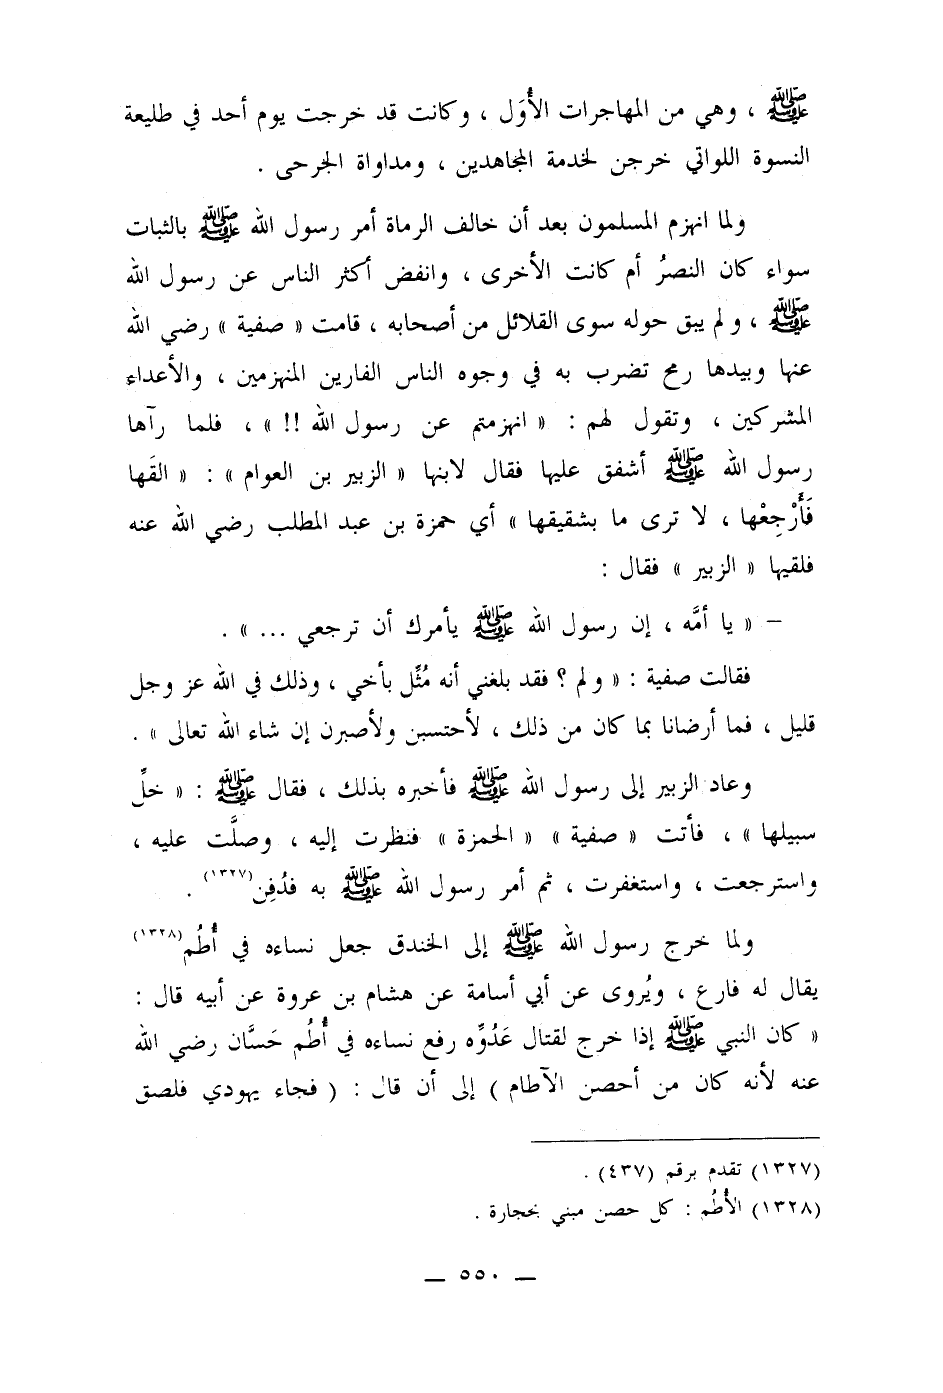 ﷺ ، وهي من المهاجرات الأُوَل ، وكانت قد خرجت يوم أحد في طليعة
النسوة اللواتي خرجن لخدمة المجاهدين ، ومداواة الجرحى .
ولما انهزم المسلمون بعد أن خالف الرماة أمر رسول الله ﷺ بالثبات
سواء كان النصرُ أم كانت الأخرى ، وانفض أكثر الناس عن رسول الله
ﷺ ، ولم يبق حوله سوى القلائل من أصحابه ، قامت « صفية » رضي الله
عنها وبيدها رمح تضرب به في وجوه الناس الفارين المنهزمين ، والأعداء
المشركين ، وتقول لهم : « انهزمتم عن رسول الله !! » ، فلما رآها
رسول الله ﷺ أشفق عليها فقال لابنها « الزبير بن العوام » : « القَها
فَأَرْجِعْها ، لا ترى ما بشقيقها » أي حمزة بن عبد المطلب رضي الله عنه
فلقيها « الزبير » فقال :
– « يا أمَّه ، إن رسول الله ﷺ يأمرك أن ترجعي ... » .
فقالت صفية : « ولم ؟ فقد بلغني أنه مُثِّل بأخي ، وذلك في الله عز وجل
قليل ، فما أرضانا بما كان من ذلك ، لأحتسبن ولأصبرن إن شاء الله تعالى » .
وعاد الزبير إلى رسول الله ﷺ فأخبره بذلك ، فقال ﷺ : « خلِّ
سبيلها » ، فأتت « صفية » « الحمزة » فنظرت إليه ، وصلَّت عليه ،
واسترجعت ، واستغفرت ، ثم أمر رسول الله ﷺ به فدُفِن(١٣٢٧) .
ولما خرج رسول الله ﷺ إلى الخندق جعل نساءه في أُطُم(١٣٢٨)
يقال له فارع ، ويُروى عن أبي أسامة عن هشام بن عروة عن أبيه قال :
« كان النبي ﷺ إذا خرج لقتال عَدُوِّه رفع نساءه في أُطُم حَسَّان رضي الله
عنه لأنه كان من أحصن الآطام ) إلى أن قال : ( فجاء يهودي فلصق
(١٣٢٧) تقدم برقم (٤٣٧) .
(١٣٢٨) الأُطُم : كل حصن مبني بحجارة .
— ٥٥٠ —